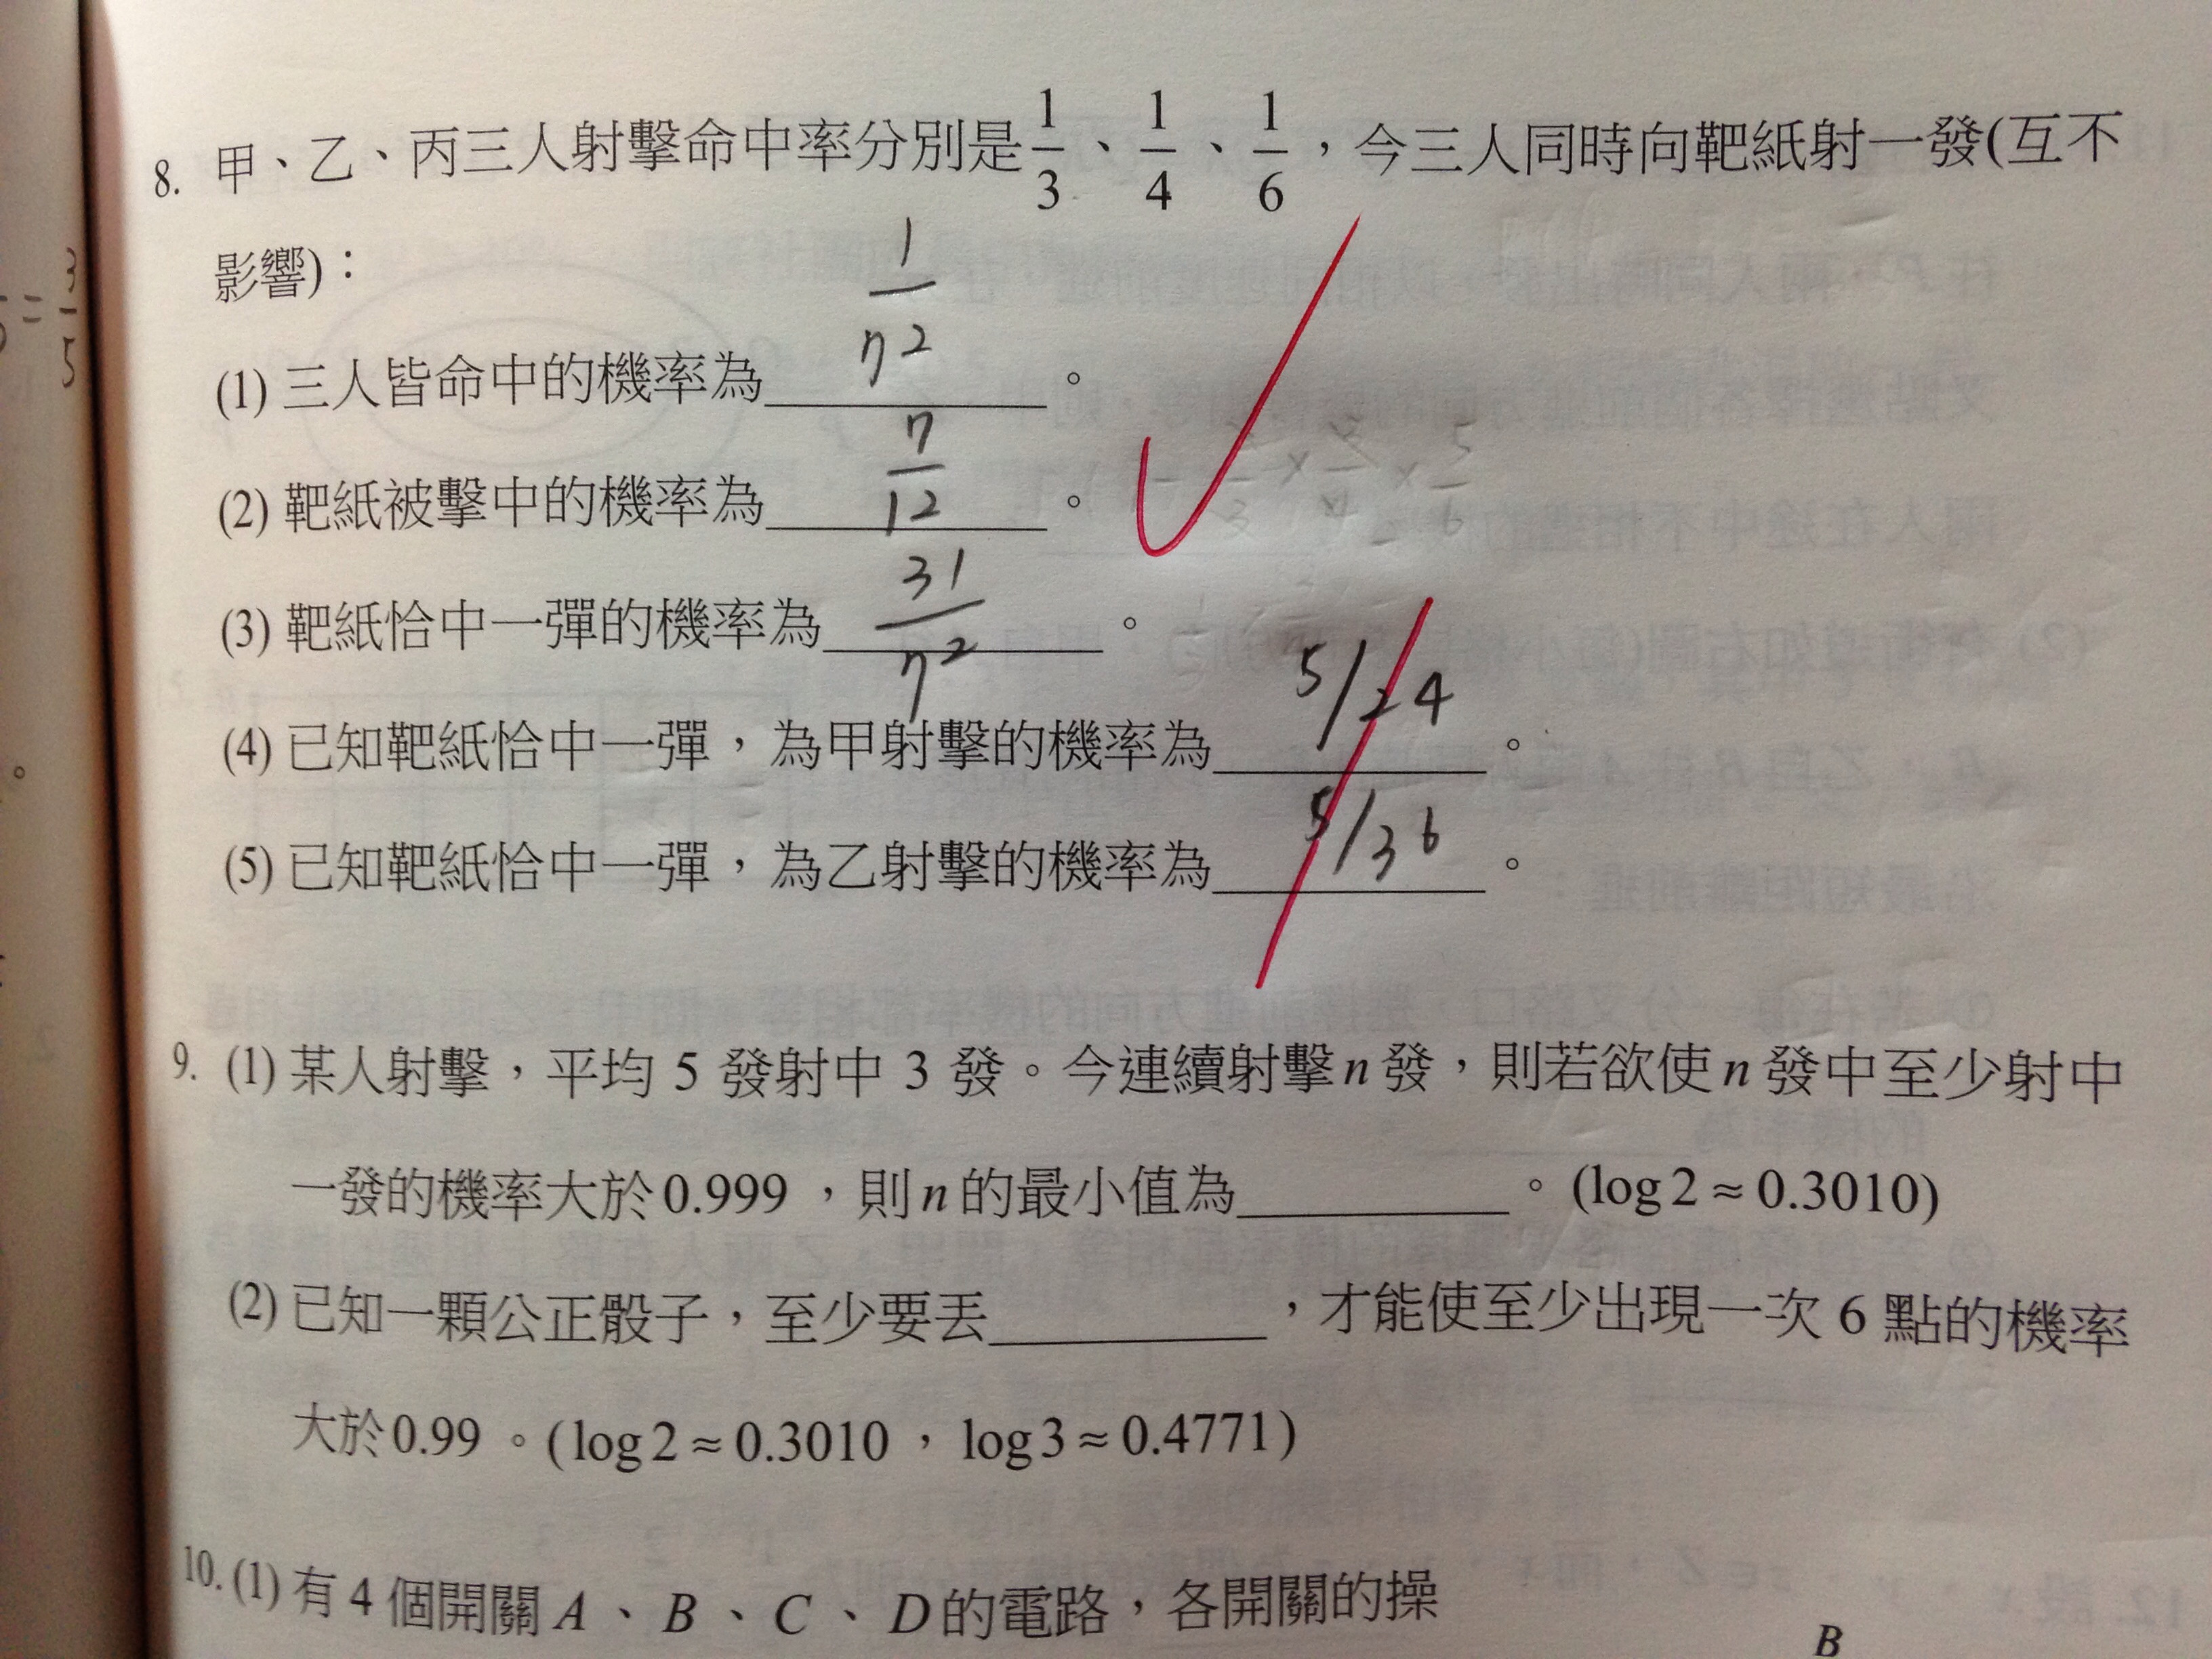 8. 甲、乙、丙三人射擊命中率分別是 1/3、1/4、1/6，今三人同時向靶紙射一發(互不
影響)：
(1) 三人皆命中的機率為 1/72 。
(2) 靶紙被擊中的機率為 7/12 。
(3) 靶紙恰中一彈的機率為 31/72 。
(4) 已知靶紙恰中一彈，為甲射擊的機率為 5/24 。
(5) 已知靶紙恰中一彈，為乙射擊的機率為 5/36 。
9. (1) 某人射擊，平均 5 發射中 3 發。今連續射擊 n 發，則若欲使 n 發中至少射中
一發的機率大於 0.999，則 n 的最小值為______。(log 2 ≈ 0.3010)
(2) 已知一顆公正骰子，至少要丟______，才能使至少出現一次 6 點的機率
大於 0.99。(log 2 ≈ 0.3010，log 3 ≈ 0.4771)
10. (1) 有 4 個開關 A、B、C、D 的電路，各開關的操
B
= 3/5